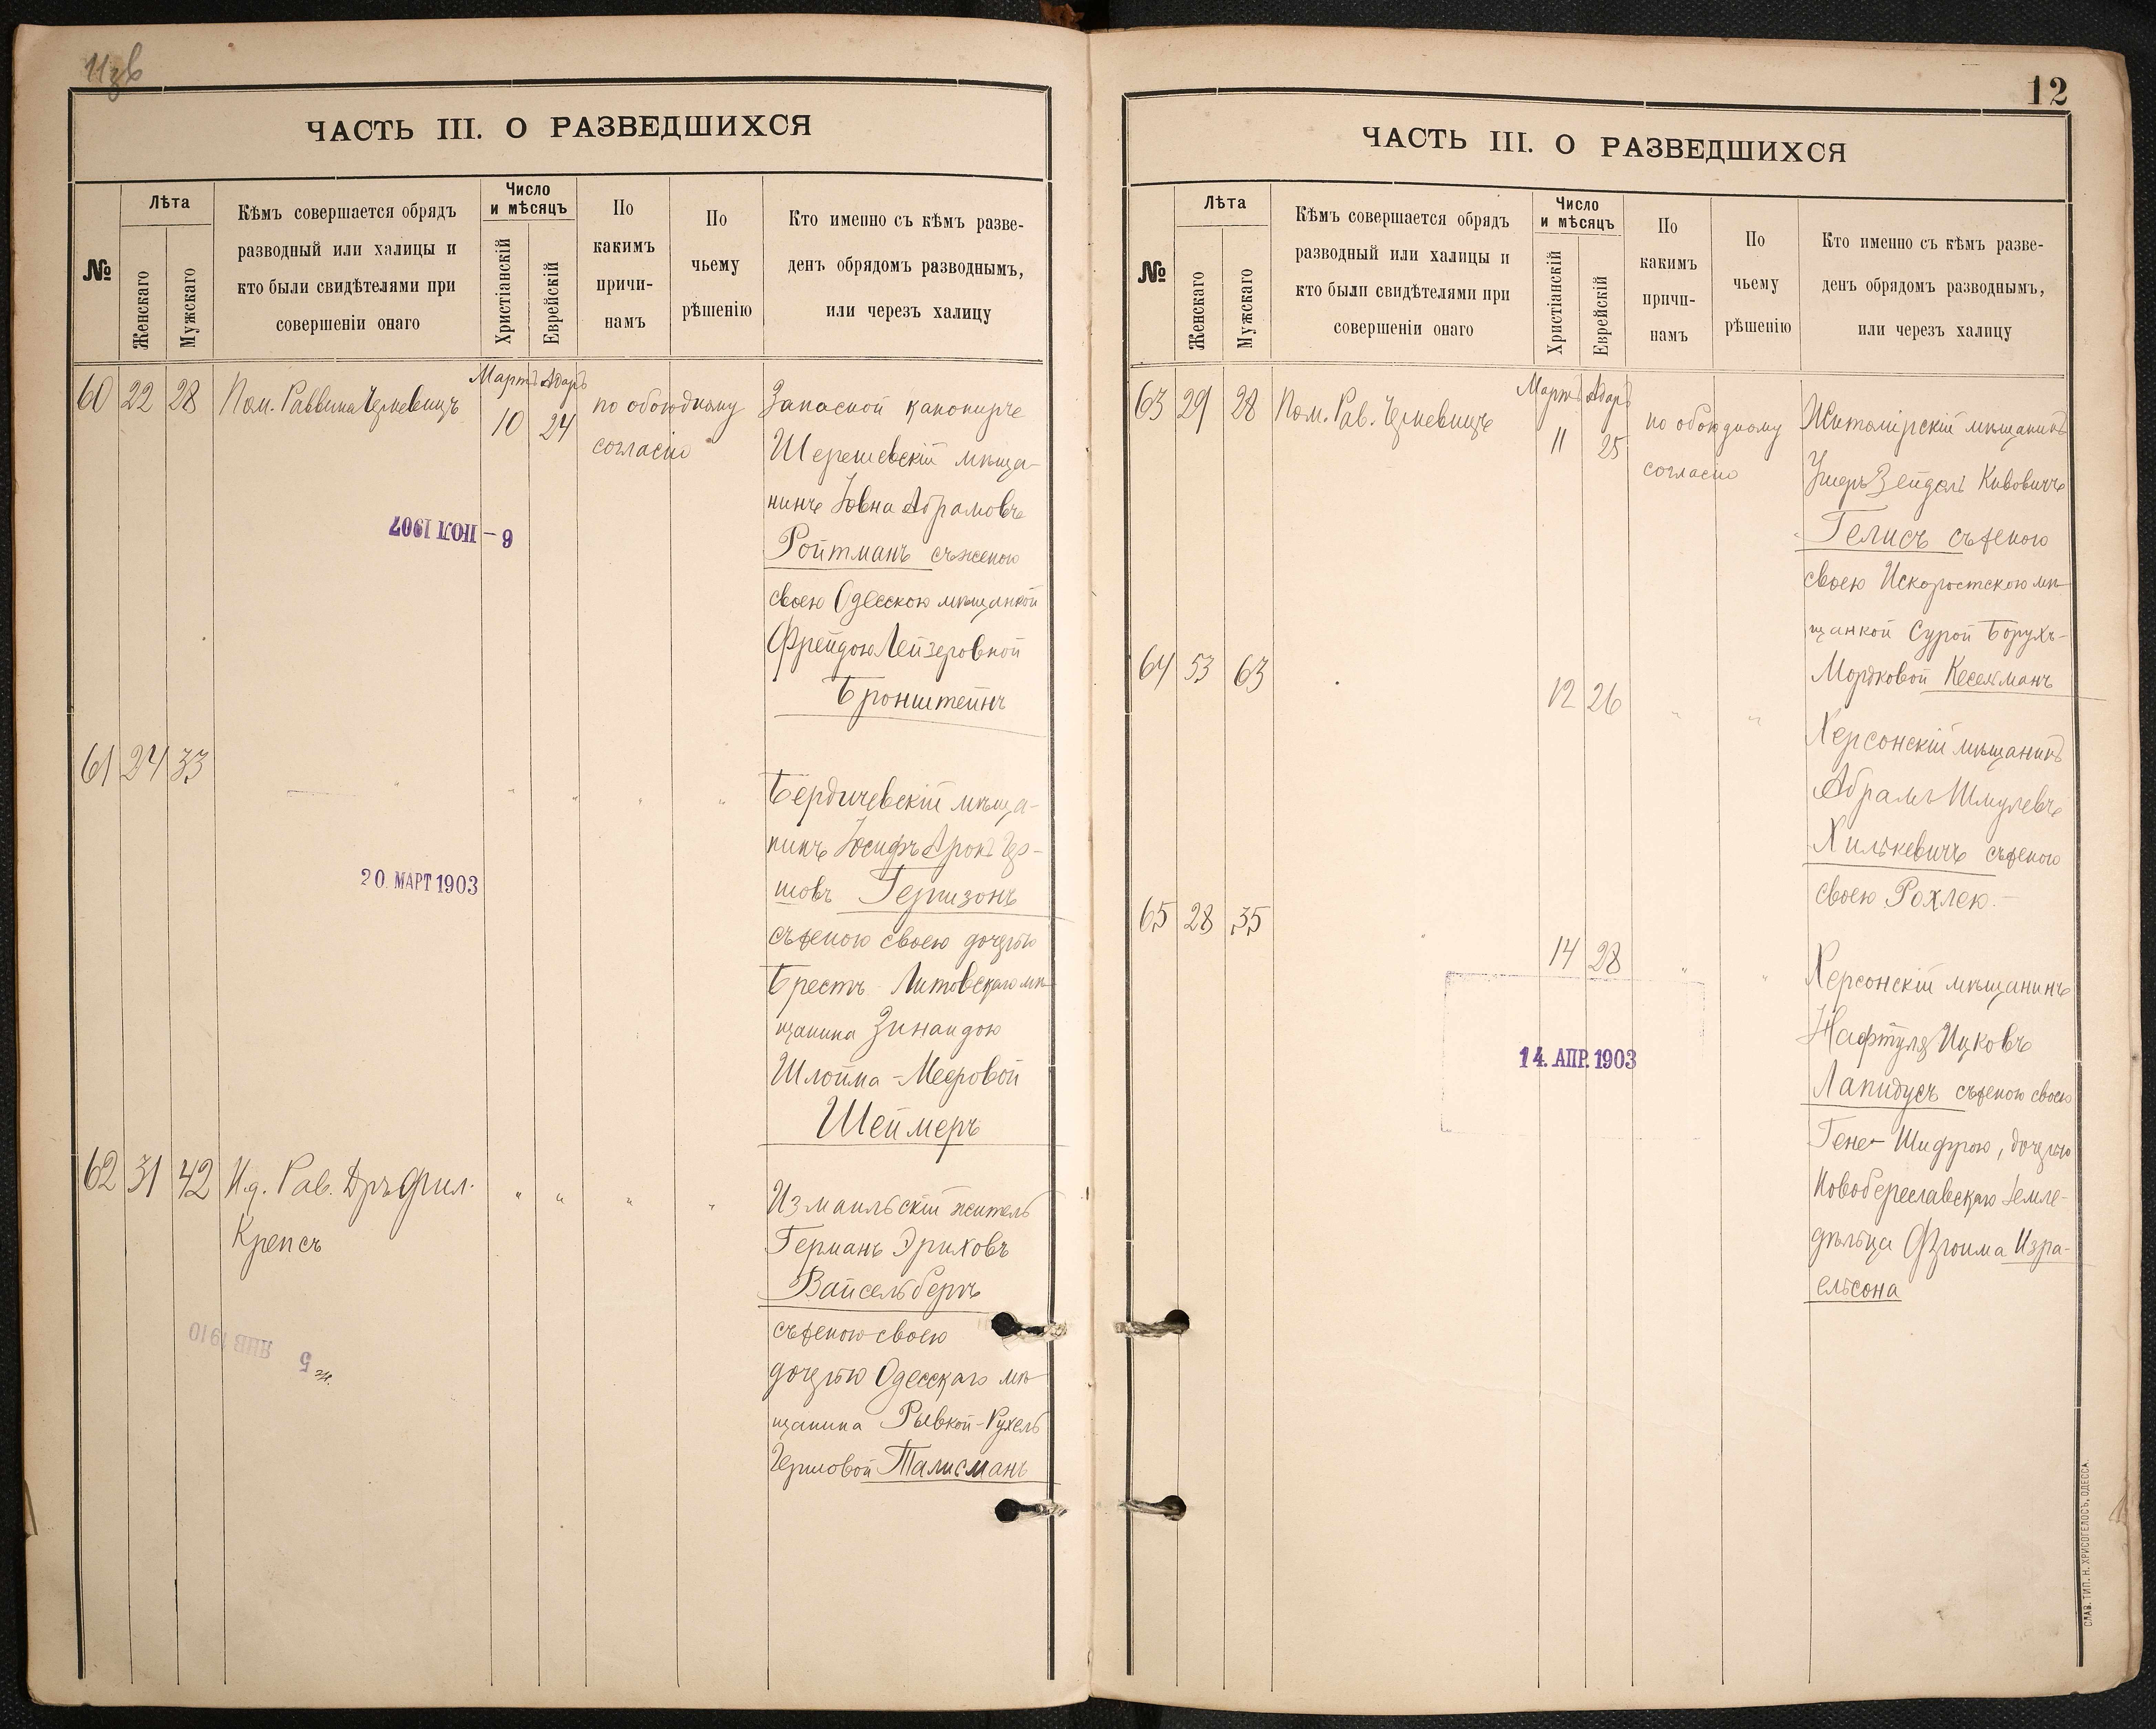 11зв
ЧАСТЬ III. О РАЗВЕДШИХСЯ
№
Лѣта
Женскаго
Мужскаго
Кѣмъ совершается обрядъ
разводный или халицы и
кто были свидѣтелями при
совершеніи онаго
Число
и мѣсяцъ
Христіанскій
Еврейскій
По
какимъ
причи-
намъ
По
чьему
рѣшенію
Кто именно съ кѣмъ разве-
денъ обрядомъ разводнымъ,
или черезъ халицу
60 22 28 Пом. Раввина
Мартъ Адаръ
10 24
по обоюдному
согласію
Запасной канониръ
Шерешевскій мѣща-
нинъ Іовна Абрамовъ
Ройтманъ съ женою
своею Одесскою мѣщанкой
Фрейдою Лейзеровной
Бронштейнъ
6 - ІЮЛ 1907
61 24 33
" " " " "
Бердичевскій мѣща-
нинъ Іосифъ Аронъ Гер-
шовъ Гершзонъ
съ женою своею дочерью
Брестъ-Литовскаго мѣ-
щанина Зинаидою
Шлойма-Мееровой
Шеймеръ
20. МАРТ 1903
62 31 42 И.д. Рав. Дръ Фил.
Крепсъ
" " " "
Измаильскій житель
Германъ Эриховъ
Вайсельбергъ
съ женою своею
дочерью Одесскаго мѣ-
щанина Рывкой-Рухель
Гершовой Талисманъ
5 ЯНВ 1910
12
ЧАСТЬ III. О РАЗВЕДШИХСЯ
№
Лѣта
Женскаго
Мужскаго
Кѣмъ совершается обрядъ
разводный или халицы и
кто были свидѣтелями при
совершеніи онаго
Число
и мѣсяцъ
Христіанскій
Еврейскій
По
какимъ
причи-
намъ
По
чьему
рѣшенію
Кто именно съ кѣмъ разве-
денъ обрядомъ разводнымъ,
или черезъ халицу
63 29 28 Пом. Рав.
Мартъ Адаръ
11 25
по обоюдному
согласію
Житомірскій мѣщанинъ
Ушеръ Зейдель Кивовичъ
Гелисъ съ женою
своею Искоростскою мѣ-
щанкой Сурой Борухъ-
Мордковой Кесельманъ
64 53 63
12 26 " "
Херсонскій мѣщанинъ
Абрамъ Шмулевъ
Хилькевичъ съ женою
своею Рохлею.
65 28 35
" 14 28 " "
Херсонскій мѣщанинъ
Нафтуля Ицковъ
Лапидусъ съ женою своею
Гене-Шифрою, дочерью
Новобереславскаго земле-
дѣльца Фроима Изра-
ельсона
14. АПР. 1903
СЛАВ. ТИП. Н. ХРИСОГЕЛОСЪ, ОДЕССА.